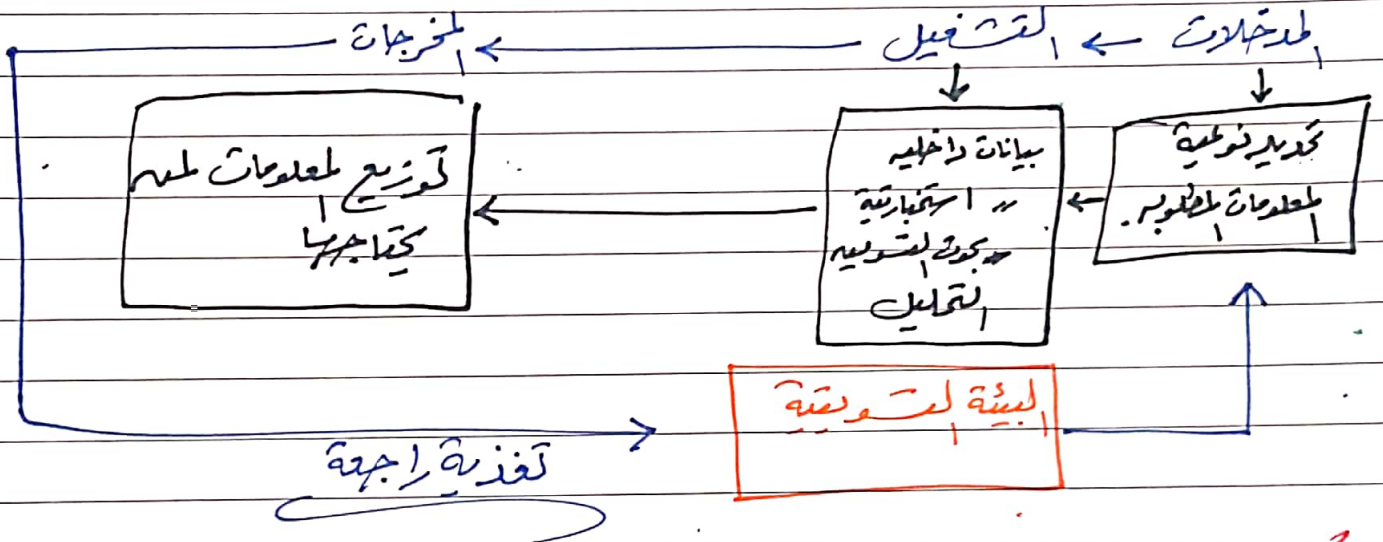 المدخلات ← التشغيل ← المخرجات
تحديد نوعية
المعلومات المطلوبه.
بيانات داخليه
〃 استخباراتية
〃 بحوث التسويق
التحليل
توزيع المعلومات لمن
يحتاجها
البيئة التسويقية
تغذية راجعة